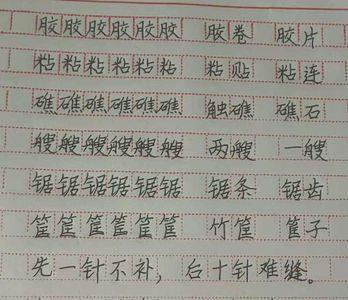 胶胶胶胶胶胶 胶卷 胶片
粘粘粘粘粘粘 粘贴 粘连
礁礁礁礁礁礁 触礁 礁石
艘艘艘艘艘艘 两艘 一艘
锯锯锯锯锯锯 锯条 锯齿
筐筐筐筐筐筐 竹筐 筐子
先一针不补，后十针难缝。